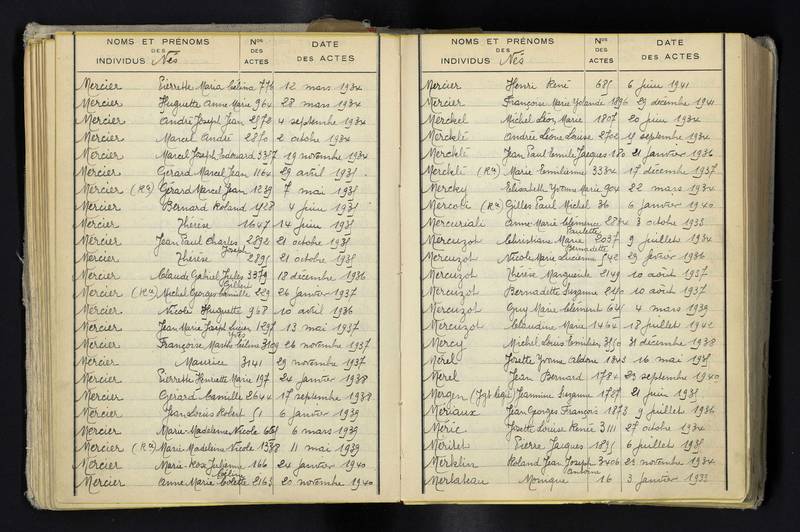 NOMS ET PRÉNOMS DES INDIVIDUS Nés Nos DES ACTES DATE DES ACTES
Mercier Pierrette Maria Célina 776 12 mars 1934
Mercier Huguette Anne Marie 964 28 mars 1934
Mercier André Joseph Jean 4 septembre 1934
Mercier Marcel André 2 octobre 1934
Mercier Marcel Joseph Edouard 19 novembre 1934
Mercier Gérard Marcel Jean 1164 29 avril 1935
Mercier (Ra) Gérard Marcel Jean 1239 7 mai 1935
Mercier Bernard Roland 4 juin 1935
Mercier Thérèse 1647 14 juin 1935
Mercier Jean Paul Charles Joseph 2892 21 octobre 1935
Mercier Thérèse 21 octobre 1935
Mercier Claude Gabriel Jules 3379 18 décembre 1936
Mercier (Ra) Michel Georges Camille 229 26 janvier 1937
Mercier Nicole Huguette 968 10 avril 1936
Mercier Jean Marie Joseph Lucien 1297 13 mai 1937
Mercier Françoise Marthe Célina 26 novembre 1937
Mercier Maurice 3141 29 novembre 1937
Mercier Pierrette Henriette Marie 197 24 janvier 1938
Mercier Gérard Camille 2644 17 septembre 1938
Mercier Jean Louis Robert 6 janvier 1939
Mercier Marie Madeleine Nicole 6 mars 1939
Mercier (Ra) Marie Madeleine Nicole 11 mai 1939
Mercier Marie-Rose Julienne 166 24 janvier 1940
Mercier Anne Marie Colette 20 novembre 1940
NOMS ET PRÉNOMS DES INDIVIDUS Nés Nos DES ACTES DATE DES ACTES
Mercier Henri René 6 juin 1941
Mercier Françoise Marie Yolande 1896 29 décembre 1941
Merckel Michel Léon Marie 1807 20 juin 1934
Mercklé Andrée Léone Louise 2702 septembre 1934
Mercklé Jean Paul Emile Jacques 180 21 janvier 1936
Mercklé (Ra) Marie Emilienne 3334 17 décembre 1937
Mercky Elisabeth Yvonne Marie 904 22 mars 1934
Mercoli (Ra) Gilles Paul Michel 36 6 janvier 1940
Mercuriali Anne Marie Clémence 3 octobre 1933
Paulette
Mercuzot Christiane Marie 2037 9 juillet 1934
Bernadette
Mercuzot Nicole Marie Lucienne 29 février 1936
Mercuzot Thérèse Marguerite 2149 10 août 1937
Mercuzot Bernadette Suzanne 2150 10 août 1937
Mercuzot Guy Marie Clément 4 mars 1939
Mercuzot Claudine Marie 1464 18 juillet 1942
Mercy Michel Louis Emilien 31 décembre 1938
Mérel Josette Yvonne 16 mai 1935
Mérel Jean Bernard 1784 29 septembre 1940
Mergen Jeannine Suzanne 21 juin 1935
Mériaux Jean Georges François 1873 9 juillet 1936
Méric Josette Louise Renée 3111 27 octobre 1934
Mérilet Pierre Jacques 6 juillet 1935
Merklin Roland Jean Joseph 3406 29 novembre 1934
Antoine
Merlateau Monique 16 3 janvier 1933